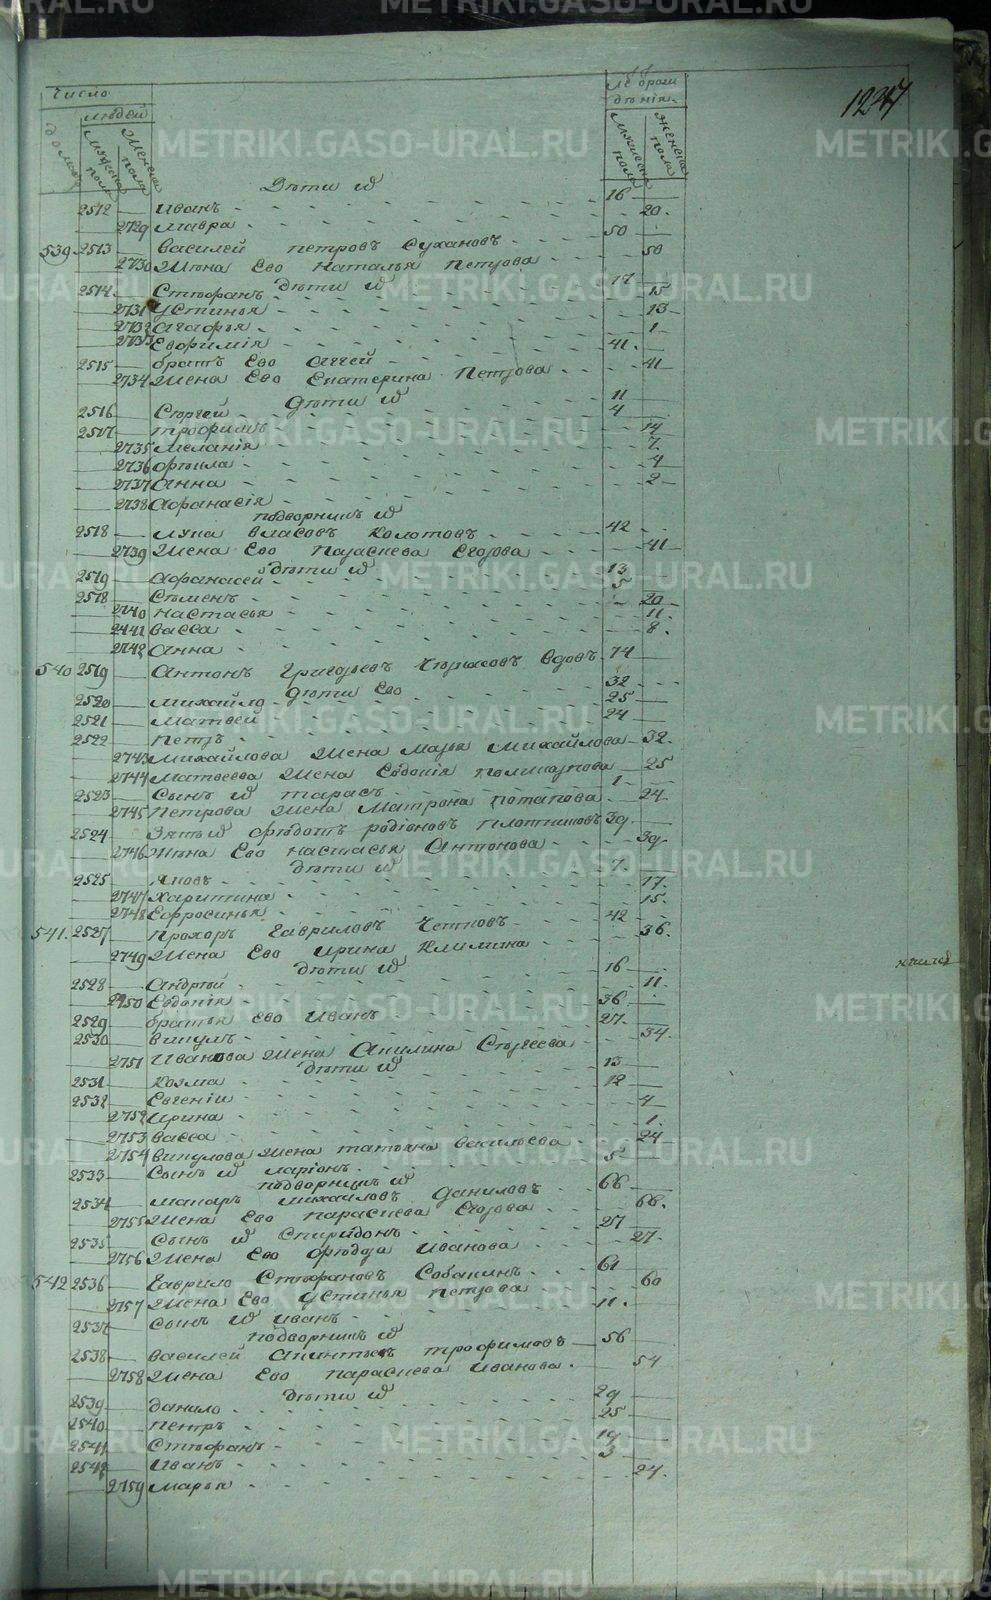 Число
людей
домовъ
Мужска пола
Женска пола
лѣ
дѣнія
Мужеска пола
Женска пола
1247
Дѣти ѿ
2512 Иванъ 16
2729 Мавра 20
539 2513 Василей Петровъ Сухановъ 50
2730 Жѣна Ево Наталья Петрова 50
Дѣти ѿ
2514 Стѣфанъ 17
2731 Устинья 15
2732 Агафья 13
2733 Евфимія 1
2515 братъ Ево 41
2734 Жена Ево Екатерина Петрова 41
Дѣти ѿ
2516 Сѣргей 11
2517 Трофимъ 4
2735 Меланія 14
2736 Фѣкла 7
2737 Анна 4
2738 Афанасія 2
подворникъ ѿ
2518 Лука Власовъ Колотовъ 42
2739 Жена Ево Параскева Егорова 41
дѣти ѿ
2519 Афанасей 13
2518 Сѣменъ 5
2740 Настасья 20
2441 Васса 11
2742 Анна 8
540 2519 Антонъ Григорьевъ вдовъ 74
дѣти Ево
2520 Михайло 32
2521 Матвей 25
2522 Петръ 24
2743 Михайлова Жена Марья Михайлова 32
2744 Матвеева Жена Евдокія Поликарпова 25
2523 Сынъ ѿ Тарасъ 1
2745 Петрова Жена Матрона Потапова 24
2524 Зять ѿ Фѣдотъ Родіоновъ Плотниковъ 39
2746 Жѣна Ево Настасья Антонова 39
дѣти ѿ
2525 Яковъ 7
2747 Харитина 17
2748 Ефросинья 15
541 2527 Прохоръ Гавриловъ 42
2749 Жена Ево Ирина Климина 36
дѣти ѿ
2528 Андрѣй 16
2750 Евдокія 11
2529 братья ево Иванъ 36
2530 Викулъ 27
2751 Иванова Жена Акилина Сѣргеева 34
дѣти ѿ
2531 Козма 13
2532 Евгеній 12
2752 Ирина 4
2753 Васса 1
2754 Викулова Жена Татьяна Васильева 24
2533 Сынъ ѿ Ларіонъ 5
подворникъ ѿ
2534 Макаръ Михайловъ Даниловъ 66
2755 Жена Ево Параскева Егорова 66
2535 Сынъ ѿ Спиридонъ 27
2756 Жена Ево Фѣдора Иванова 27
542 2536 Гаврило Стѣфановъ Собакинъ 61
2757 Жена Ево Устинья Петрова 60
2537 Сынъ ѿ Иванъ 11
подворникъ ѿ
2538 Василей Трофимовъ 56
2758 Жена Ево Параскева Иванова 54
дѣти ѿ
2539 Данило 29
2540 Пентръ 25
2541 Стѣфанъ 19
2542 Иванъ 3
2759 Марья 24
METRIKI.GASO-URAL.RU